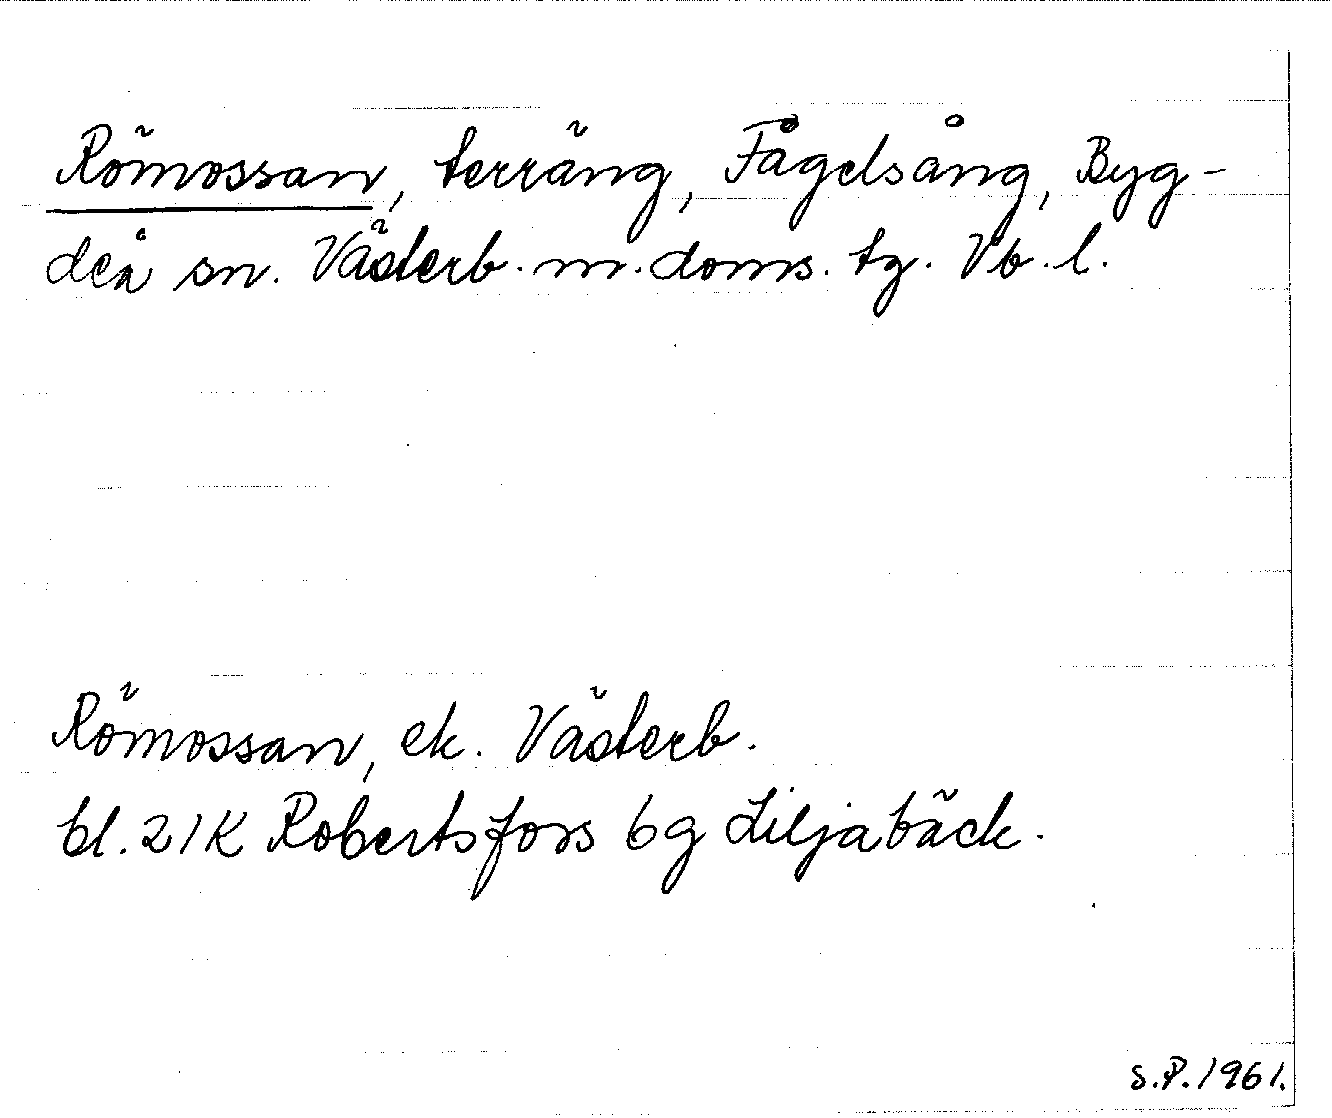 Römossan, terräng, Fågelsång, Byg-
deå sn. Västerb. m. doms. tg. Vb. l.
Römossan, ek. Västerb.
bl. 21K Robertsfors 6g Liljabäck.
S.P. 1961.